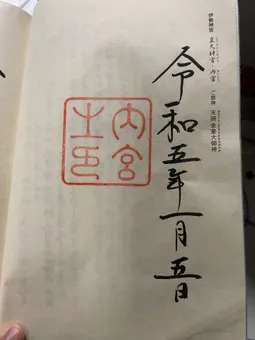 伊勢神宮
皇大神宮・内宮 ご祭神 天照坐皇大御神
令和五年一月五日
内宮
之印